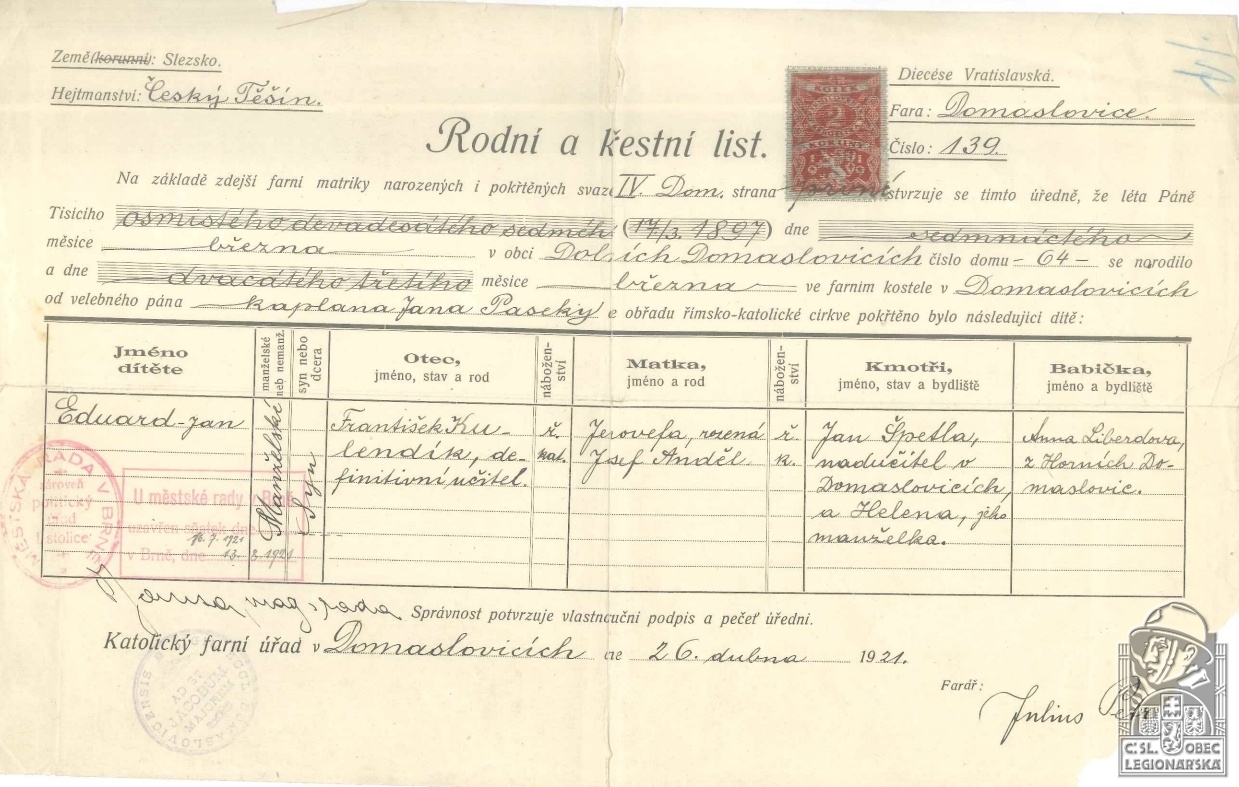 Země (korunní): Slezsko.
Hejtmanství: Český Těšín.
Diecése Vratislavská.
Fara: Domaslovice.
Číslo: 139.
Rodní a křestní list.
Na základě zdejší farní matriky narozených i pokřtěných svaze IV. Dom. strana první stvrzuje se timto úředně, že léta Páně
Tisicího osmistého devadesátého sedmého (17/3. 1897) dne sedmnáctého
měsice března v obci Dolních Domaslovicích číslo domu - 64 - se narodilo
a dne dvacátého třetího měsice března ve farnim kostele v Domaslovicích
od velebného pána kaplana Jana Paseky e obřadu římsko-katolické cirkve pokřtěno bylo následujici dítě:
Jméno dítěte
manželské neb nemanž.
syn nebo dcera
Otec, jméno, stav a rod
nábožen- ství
Matka, jméno a rod
nábožen- ství
Kmotři, jméno, stav a bydliště
Babička, jméno a bydliště
Eduard-Jan
Manželské
Syn
František Ku-
lendík, de-
finitivní učitel.
ř.
kat.
Jerovefa, rozená
Josef Anděl.
ř.
k.
Jan Špetla,
nadučitel v
Domaslovicích,
a Helena, jeho
manželka.
Anna Liberdova,
z Horních Do-
maslovic.
MĚSTSKÁ RADA V BRNĚ
zároveň
politický
úřad
I. stolice
U městské rady v Brně
uzavřen sňatek dne
16. 7. 1921
v Brně, dne 13. 8. 1921
mag. rada
Správnost potvrzuje vlastnoučni podpis a pečeť úředni.
Katolický farní úřad v Domaslovicích dne 26. dubna 1921.
AD ST
JACOBUM
MAJOREM
Farář:
Julius
Č.SL. OBEC
LEGIONÁŘSKÁ